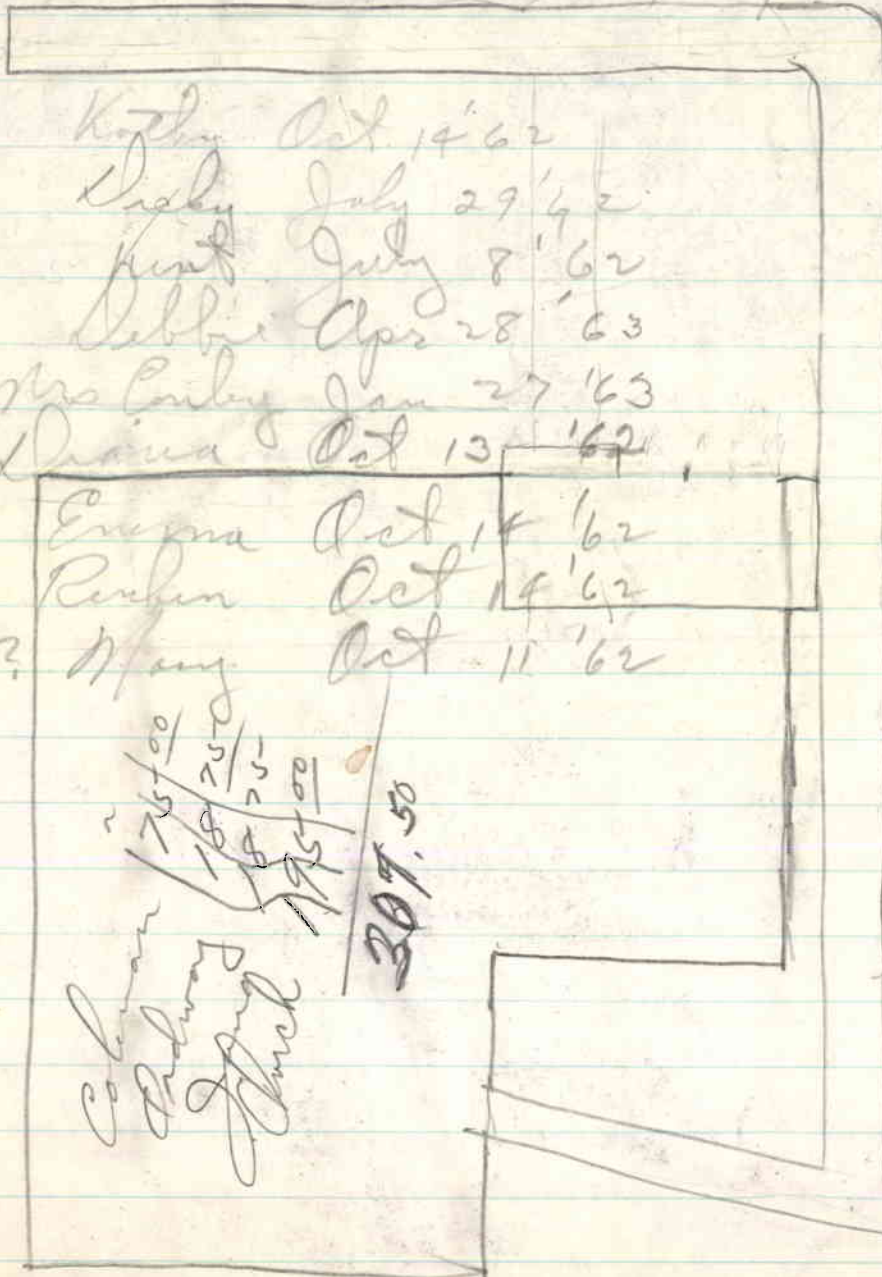 Kathy Oct. 14 '62
Digby July 29 '62
Kent July 8 '62
Debbie Apr 28 '63
Mrs Conley Jan 27 '63
Diana Oct 13 '62
Emma Oct 14 '62
Reuben Oct 14 '62
? Mary Oct 11 '62
Coleman 75 00
Ordway 18 75
18 75
195 00
307.50